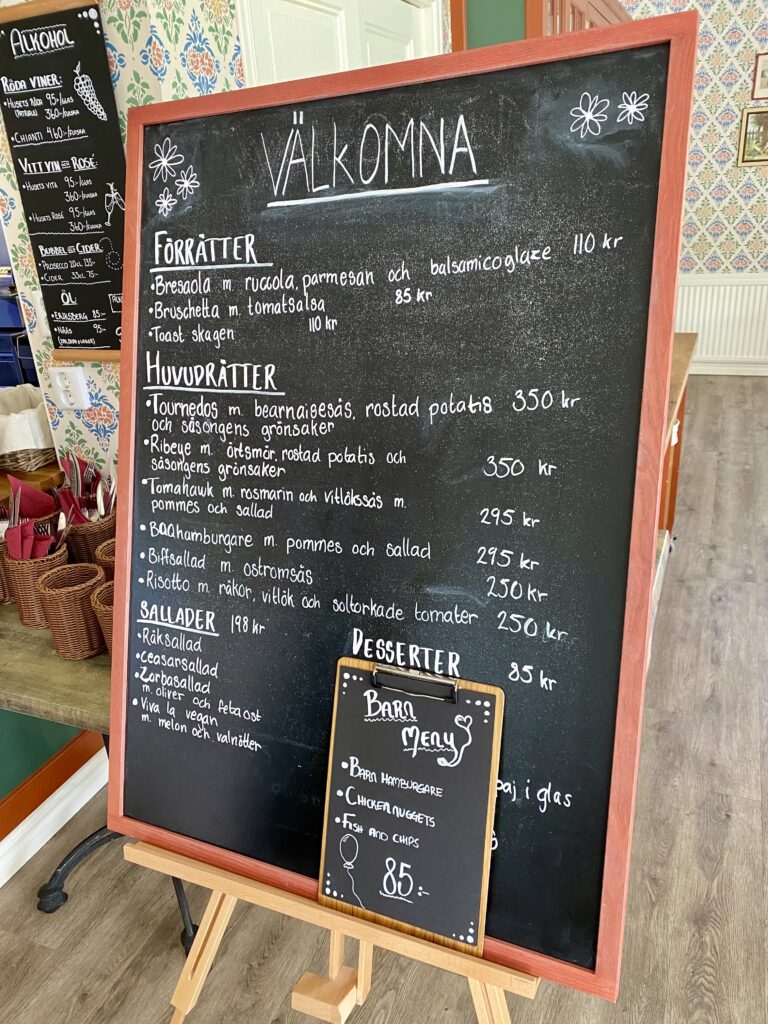 ALKOHOL
RÖDA VINER:
• HUSETS RÖDA 95:-/GLAS
360:-/FLASKA
• CHIANTI 460:-/FLASKA
VITT VIN OCH ROSÉ
• HUSETS VITA 95:-/GLAS
360:-/FLASKA
• HUSETS ROSÉ 95:-/GLAS
360:-/FLASKA
BUBBEL OCH CIDER
• PROSECCO 20CL 135:-
• CIDER 33CL 75:-
ÖL
• ERIKSBERG 85:-
95:-
VÄLKOMNA
FÖRRÄTTER
• Bresaola m. ruccola, parmesan och balsamicoglaze 110 kr
• Bruschetta m. tomatsalsa 85 kr
• Toast skagen 110 kr
HUVUDRÄTTER
• Tournedos m. bearnaisesås, rostad potatis 350 kr
och säsongens grönsaker
• Ribeye m. örtsmör, rostad potatis och 350 kr
säsongens grönsaker
• Tomahawk m. rosmarin och vitlökssås m. 295 kr
pommes och sallad
hamburgare m. pommes och sallad 295 kr
• Biffsallad m. ostromsås 250 kr
• Risotto m. räkor, vitlök och soltorkade tomater 250 kr
SALLADER 198 kr
• Räksallad
• Ceasarsallad
• Zorbasallad
m. oliver och fetaost
• Viva la vegan
m. melon och valnötter
DESSERTER 85 kr
paj i glas
BARN
MENY
• BARN HAMBURGARE
• CHICKEN NUGGETS
• FISH AND CHIPS
85:-